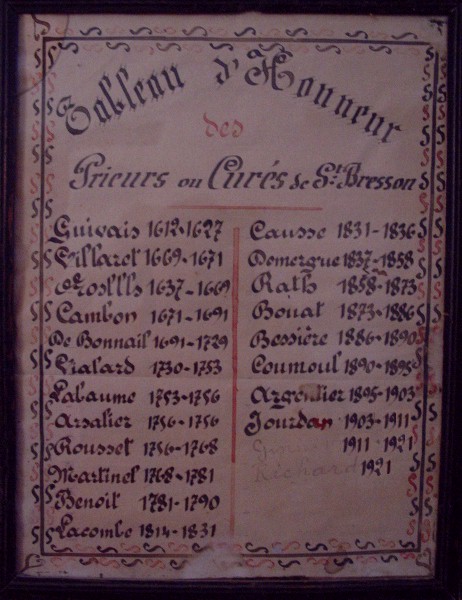 Tableau d'Honneur
des
Prieurs ou Curés de St Bresson
Guivais 1612-1627
Villaret 1669-1671
1637-1669
Cambon 1671-1691
De Bonnail 1691-1729
Vialard 1730-1753
Labaume 1753-1756
Arsalier 1756-1756
Rousset 1756-1768
Martinel 1768-1781
Benoit 1781-1790
Lacombe 1814-1831
Causse 1831-1836
Domergue 1837-1858
Rath 1858-1873
Bouat 1873-1886
Bessière 1886-1890
Coumoul 1890-1895
Argentier 1895-1903
Jourdan 1903-1911
1911-1921
Richard 1921